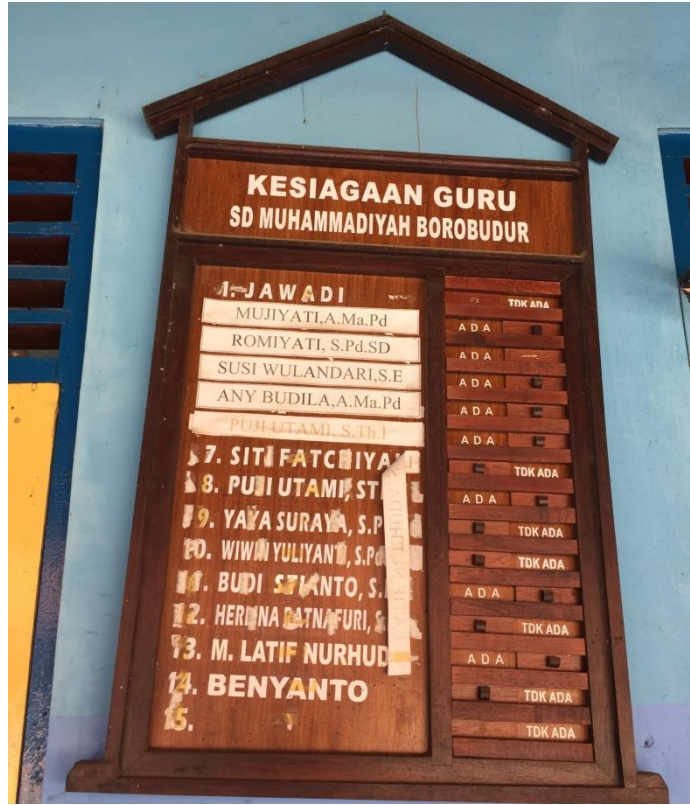 KESIAGAAN GURU
SD MUHAMMADIYAH BOROBUDUR
1. JAWADI
MUJIYATI,A.Ma.Pd
ROMIYATI, S.Pd.SD
SUSI WULANDARI,S.E
ANY BUDILA,A.Ma.Pd
PUJI UTAMI, S.Th.I
7. SITI FATCHIYA
8. PUJI UTAMI, ST
9. YAYA SURAYA, S.P
10. WIWIN YULIYANTI, S.Pd
11. BUDI STIANTO, S.
12. HERLINA RATNAFURI, S
13. M. LATIF NURHUD
14. BENYANTO
15.
TDK ADA
ADA
ADA
ADA
ADA
ADA
TDK ADA
ADA
TDK ADA
TDK ADA
ADA
TDK ADA
ADA
TDK ADA
TDK ADA